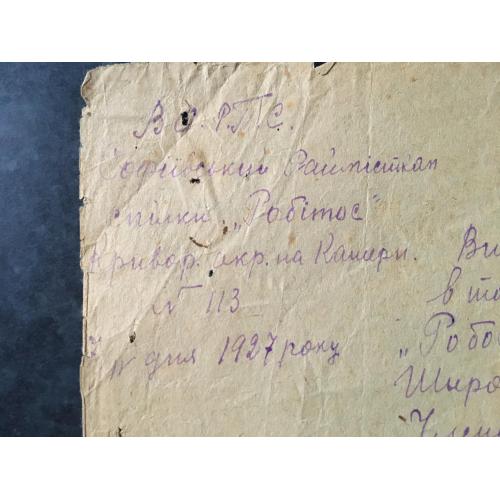 В.С.Р.П.С.
Софіївський Райместком
спілки „Робітос"
Кривор. окр. на Катери.
№ 113
дня 1927 року
Ви
в то
„Робо
Широ
Член